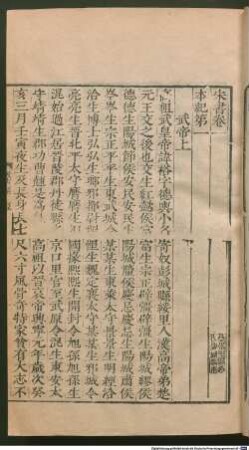 宋書卷一
本紀第一
武帝上
祖武皇帝諱裕字德輿小名寄奴彭城縣綏里人漢高帝弟楚
元王交之後也交生紅懿侯富富生宗正辟彊辟彊生陽城繆侯
德德生陽城節侯安民安民生陽城釐侯慶忌慶忌生陽城肅侯
岑岑生宗正平平生東武城令某某生東萊太守景景生明經洽
洽生博士弘弘生琅邪都尉悝悝生魏定襄太守某某生邪城令
亮亮生晉北平太守膺膺生相國掾熙熙生開封令旭孫旭孫生
混始過江居晉陵郡丹徒縣京口里官至武原令混生東安太
守靖靖生郡功曹翹是為高祖以晉哀帝興寧元年歲次癸
亥三月壬寅夜生及長身長七尺六寸風骨奇特家貧有大志不